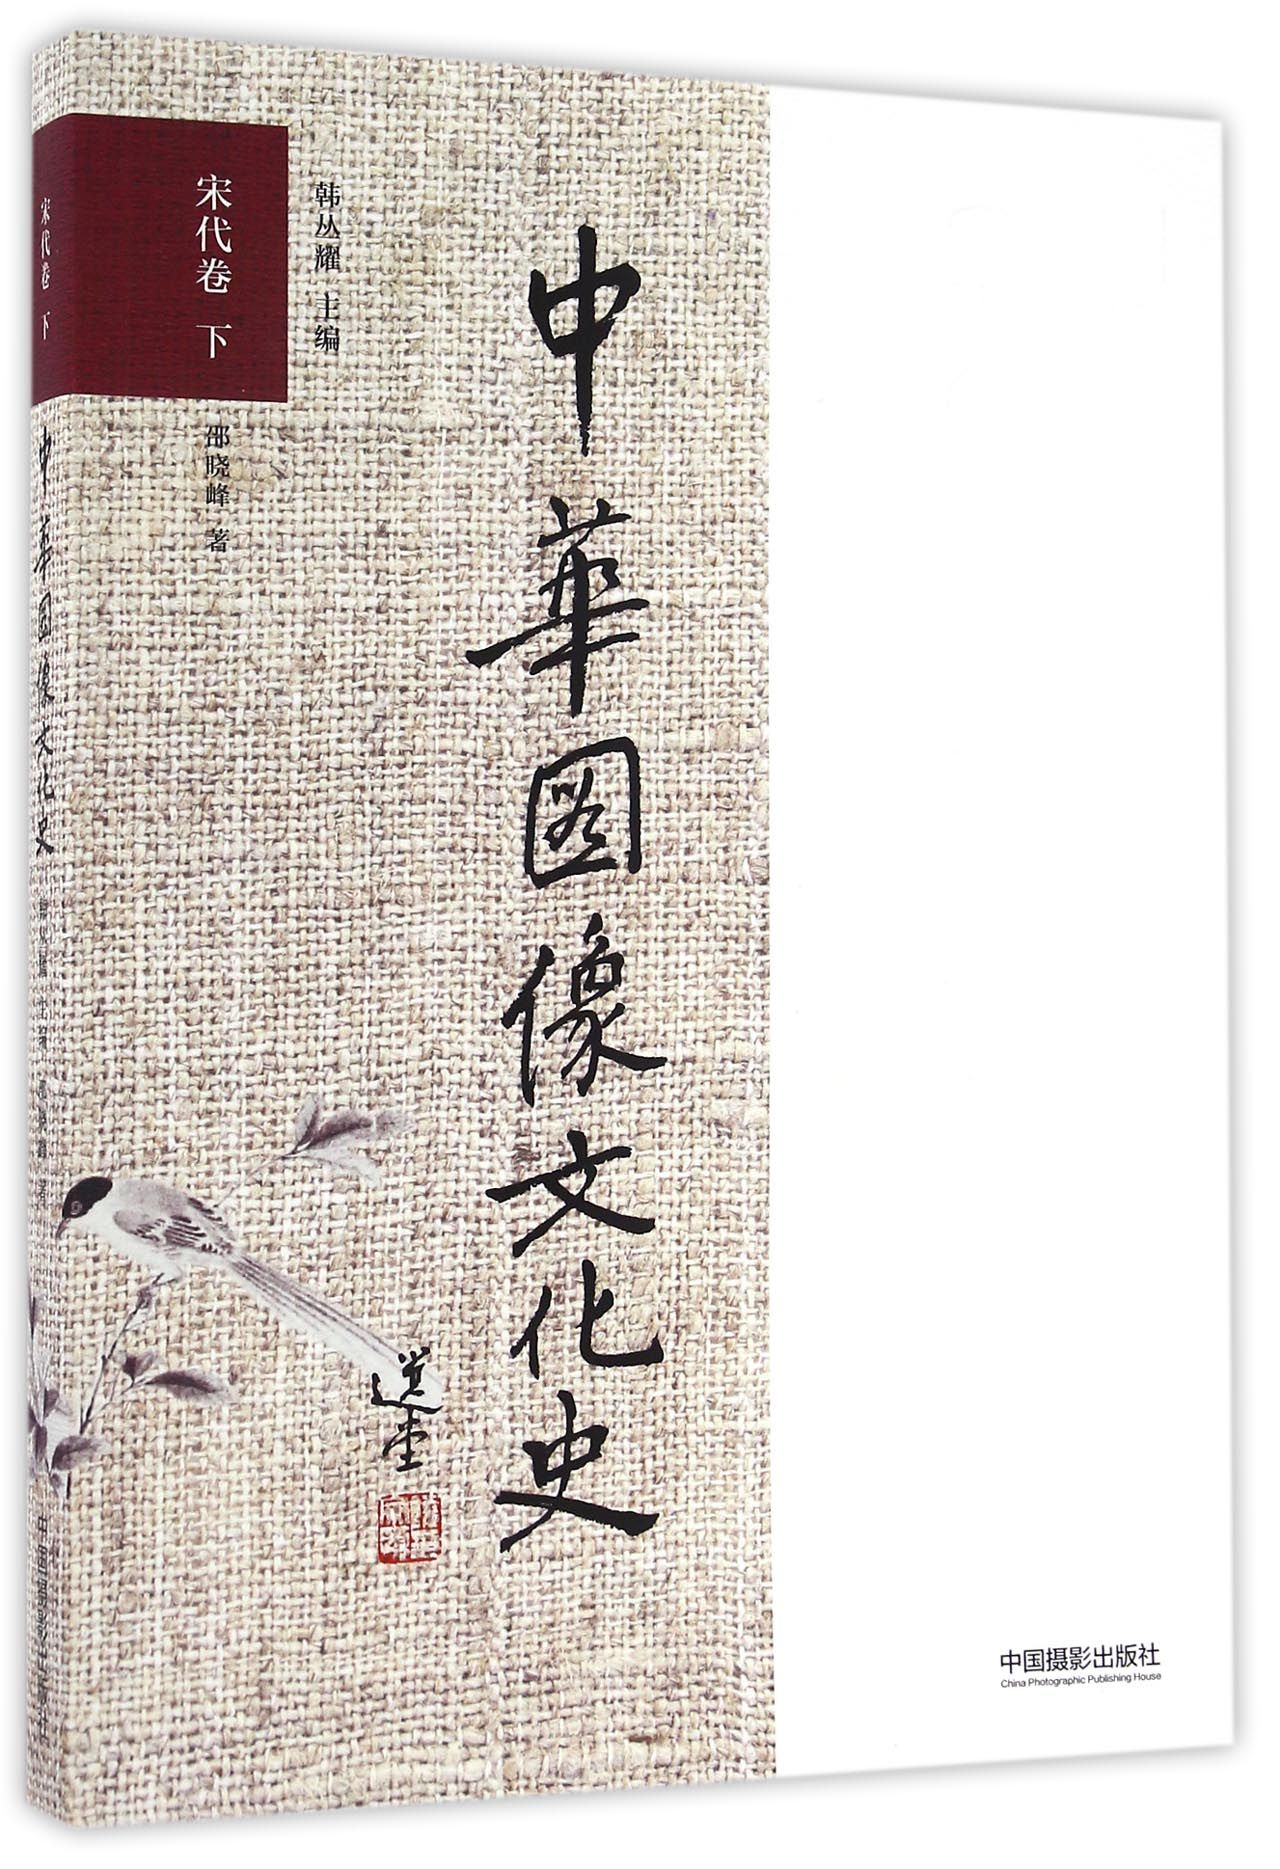 宋代卷 下
韩丛耀 主编
邵晓峰 著
中華图像文化史
选堂
中国摄影出版社
China Photographic Publishing House
宋代卷 下
中華图像文化史
韩丛耀 主编
邵晓峰 著
中国摄影出版社